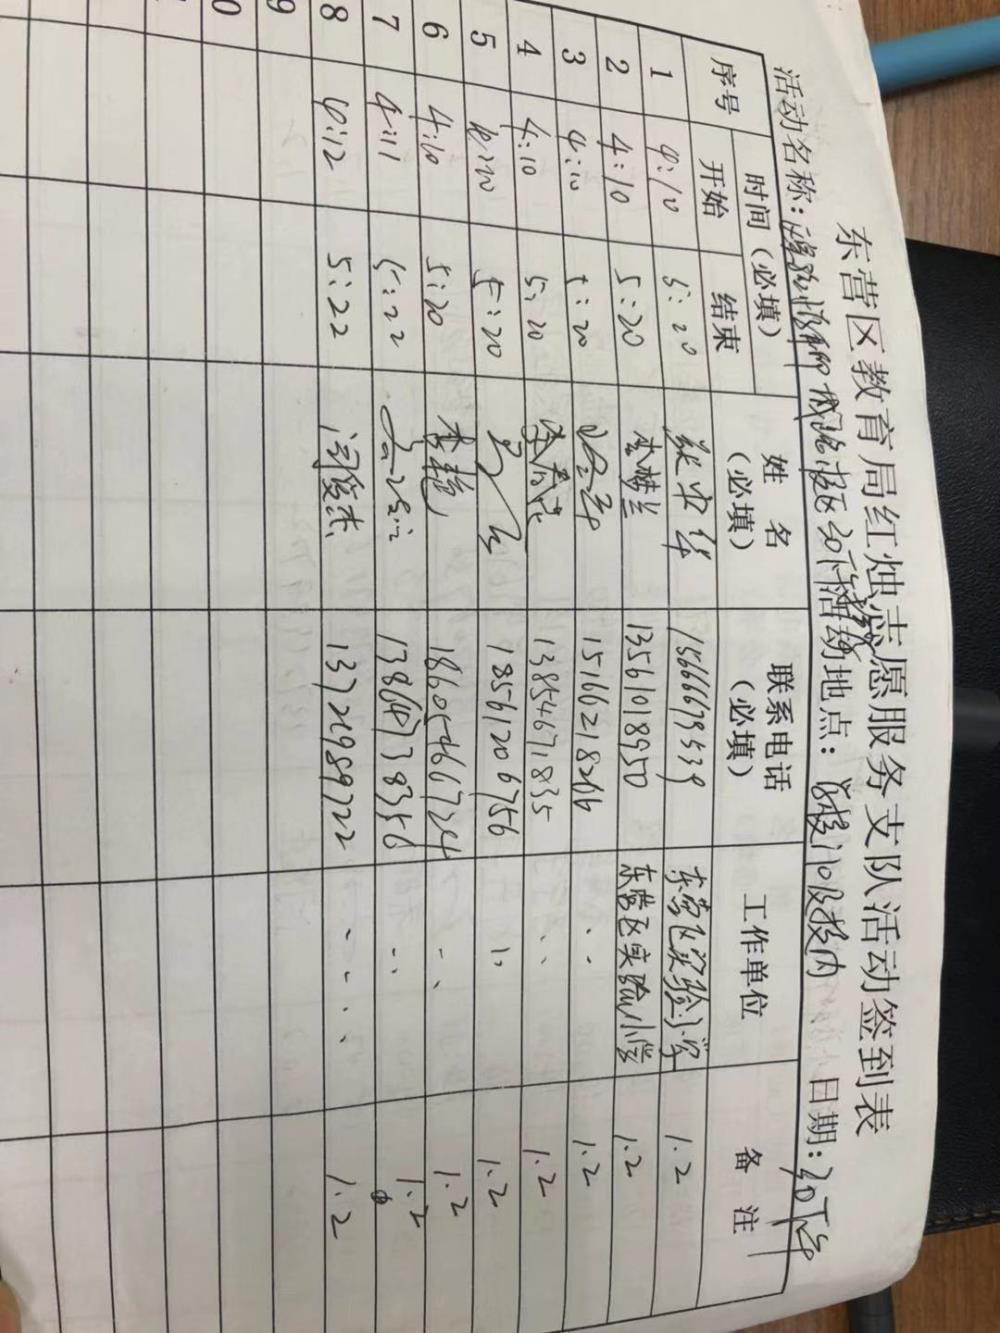 东营区教育局红烛志愿服务支队活动签到表
活动名称: 活动地点: 校门口及校内 日期: 30下午
序号 时间(必填) 姓名(必填) 联系电话(必填) 工作单位 备注
开始 结束
1 4:10 5:20 15666679539 东营区实验小学 1.2
2 4:10 5:20 李梦兰 13561018950 东营区实验小学 1.2
3 4:10 5:20 15166218266 、、 1.2
4 4:10 5:20 13854671835 、、 1.2
5 4:10 5:20 18561206756 、、 1.2
6 4:10 5:20 李艳 18605466724 、、 1.2
7 4:11 5:22 13864738356 、、 1.2
8 4:12 5:22 闫俊杰 13721989722 、、、、 1.2
9
0